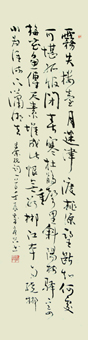 霧失樓臺月迷津渡桃源望斷知何處
可堪孤館閉春寒杜鵑聲裏斜陽暮驛寄
梅花魚傳尺素堆成此恨無重數郴江本自繞郴
山為誰流下瀟湘去